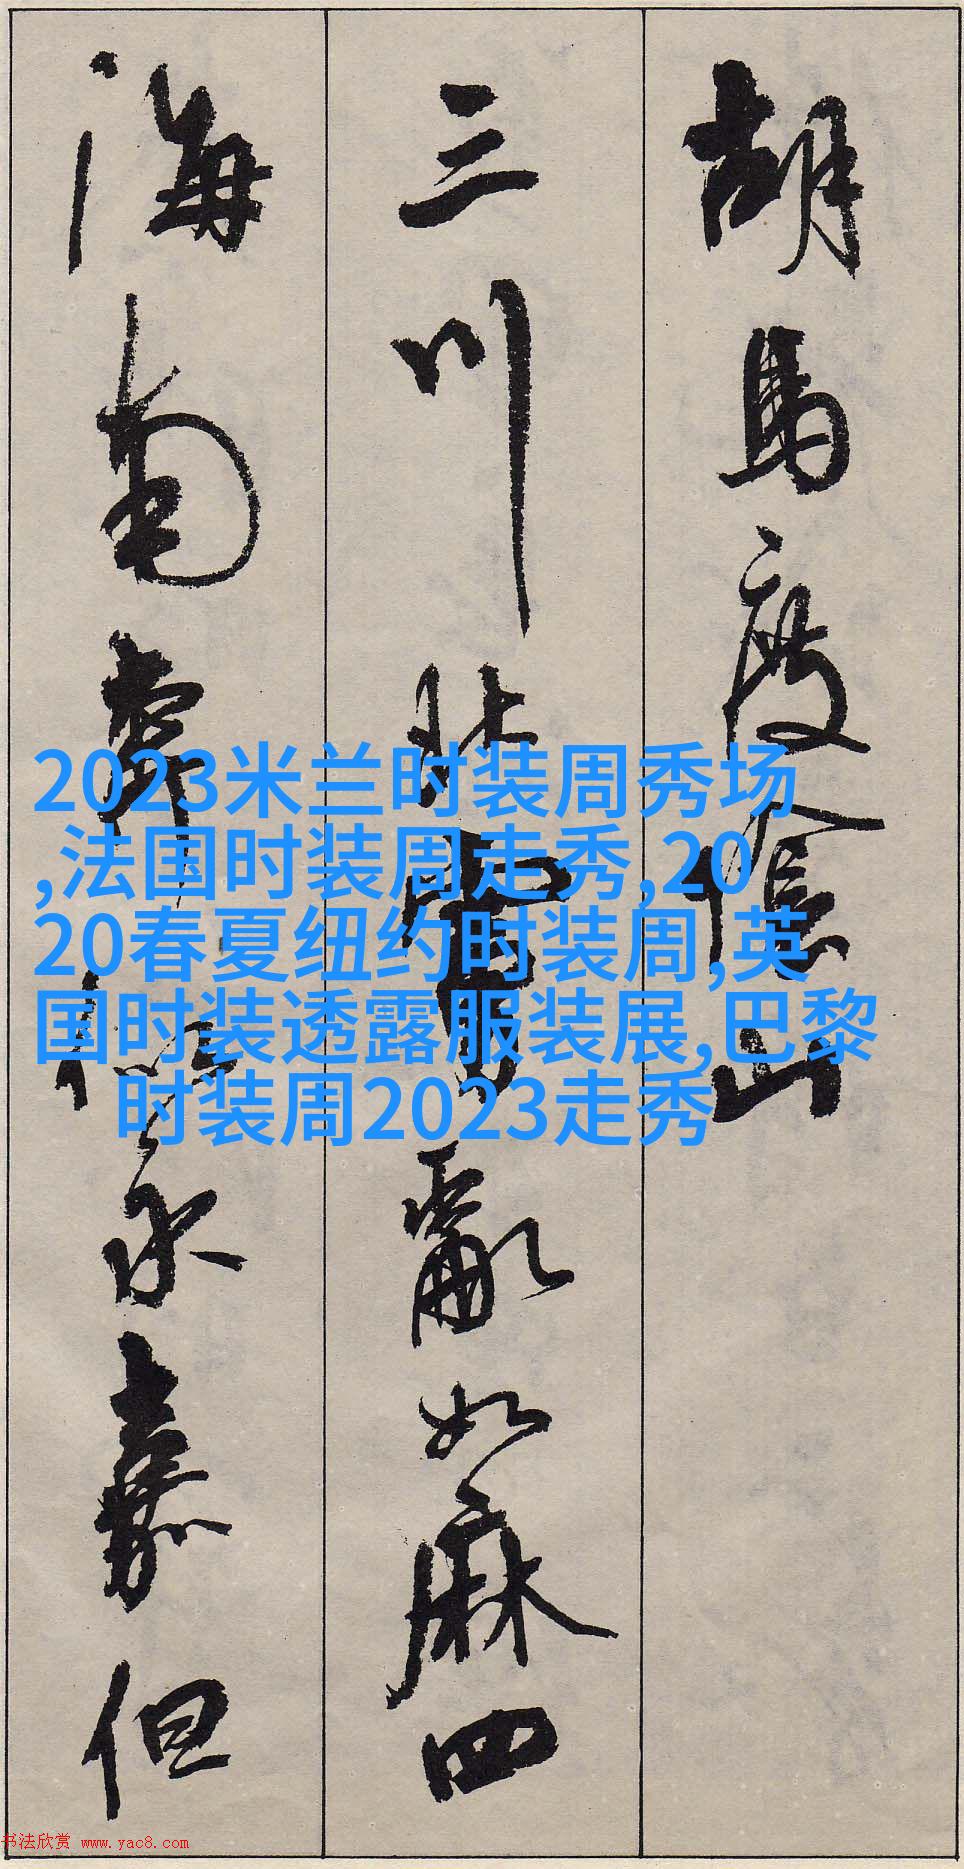 胡马度阴山
三川北虏乱如麻四
海南奔似永嘉但
2023米兰时装周秀场
,法国时装周走秀,20
20春夏纽约时装周,英
国时装透露服装展,巴黎
时装周2023走秀
书法欣赏 www.yac8.com